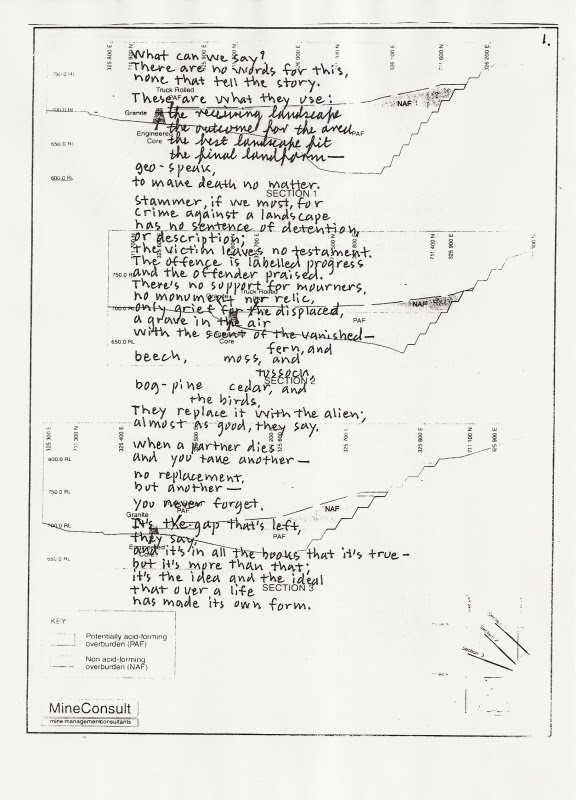 1.
What can we say?
There are no words for this,
none that tell the story.
These are what they use:
the receiving landscape
the outcome for the area
the best landscape fit
the final landform—
geo-speak,
to make death no matter.
Stammer, if we must, for
crime against a landscape
has no sentence of detention,
or description;
the victim leaves no testament.
The offence is labelled progress
and the offender praised.
There's no support for mourners,
no monument nor relic,
only grief for the displaced,
a grave in the air
with the scent of the vanished—
fern, and
beech, moss, and
tussock,
bog-pine cedar, and
the birds.
They replace it with the alien;
almost as good, they say.
When a partner dies
and you take another—
no replacement,
but another—
you never forget.
It's the gap that's left,
they say,
and it's in all the books that it's true—
but it's more than that;
it's the idea and the ideal
that over a life
has made its own form.
750.0 RL
700.0 RL
650.0 RL
600.0 RL
325 800 E
326 100 E
711 600 N
326 200 E
Truck Rolled
PAF
Granite
Engineered
Core
PAF
NAF
SECTION 1
711 400 N
325 900 E
750.0 RL
700.0 RL
650.0 RL
Truck Rolled
Core
PAF
NAF
SECTION 2
325 300 E
711 300 N
325 400 E
325 700 E
325 800 E
711 100 N
325 900 E
800.0 RL
750.0 RL
700.0 RL
650.0 RL
Granite
PAF
Core
PAF
NAF
SECTION 3
KEY
Potentially acid-forming
overburden (PAF)
Non acid-forming
overburden (NAF)
Section 3
MineConsult
mine management consultants